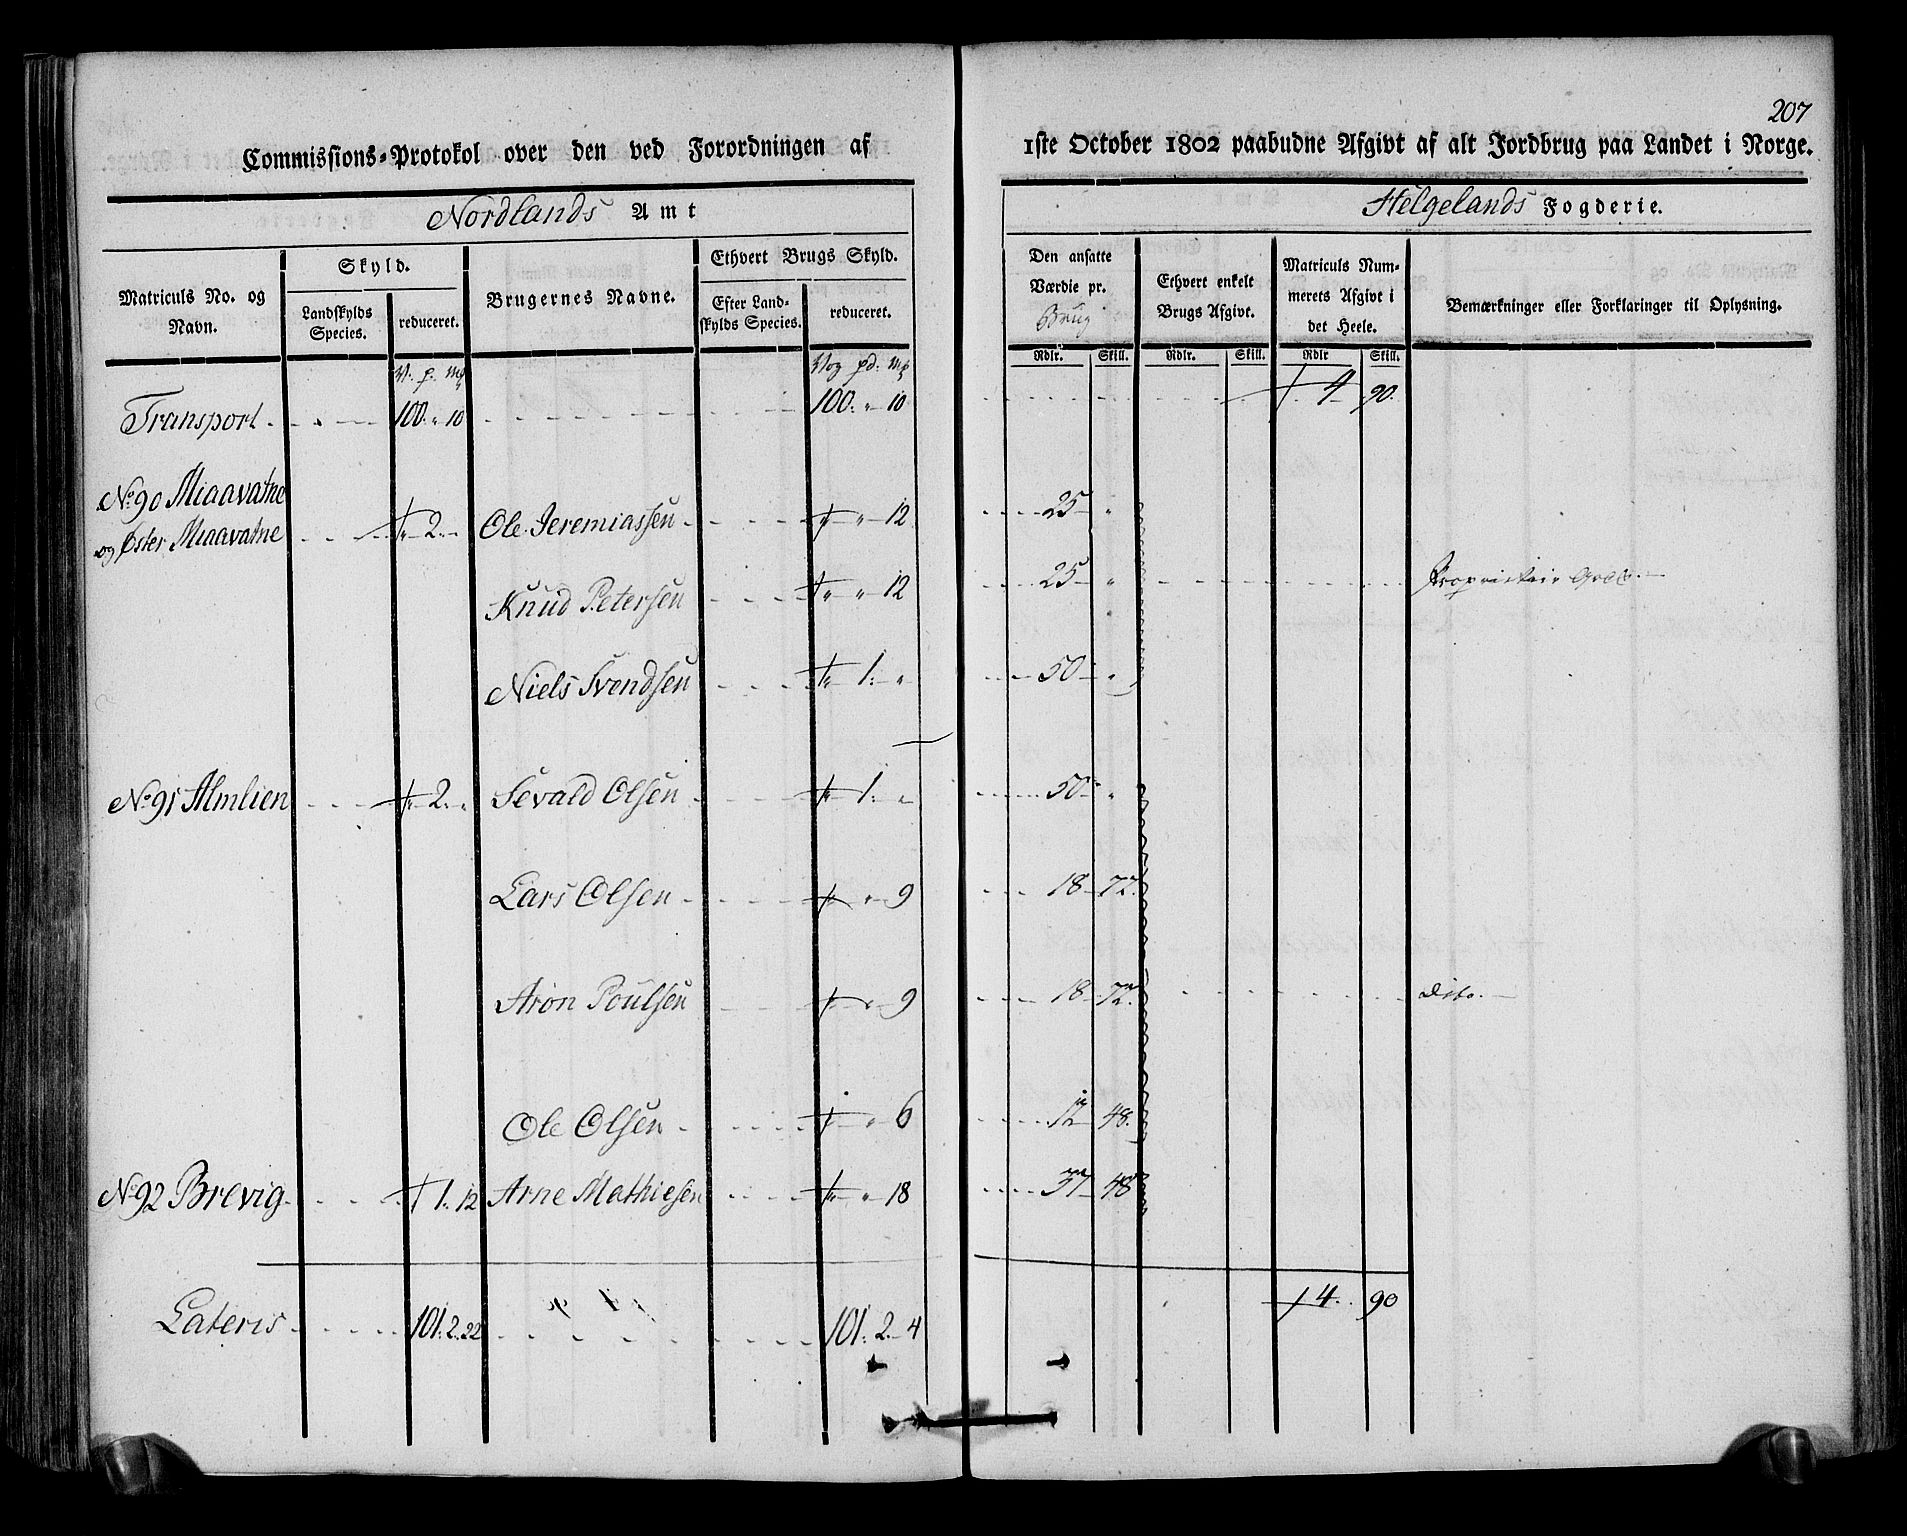 207
Commissions-Protokol over den ved Forordningen af 1ste October 1802 paabudne Afgivt af alt Jordbrug paa Landet i Norge.
Nordlands Amt
Helgelands Fogderie.
Matriculs No. og Navn.
Skyld.
Landskylds Species.
reduceret.
Brugernes Navne.
Ethvert Brugs Skyld.
Efter Landskylds Species.
reduceret.
Den ansatte Værdie pr. Brug
Ethvert enkelt Brugs Afgivt.
Matriculs Nummerets Afgivt i det Heele.
Bemærkninger eller Forklaringer til Oplysning.
Rdlr. Skill. Rdlr. Skill. Rdlr Skill.
V. p. Mk Vog pd: Mk
Transport 100. " 10 100. " 10 4 90.
No 90 Miaavatne
og Øster Miaavatne " 2. Ole Jeremiassen " " 12 25 "
Knud Petersen " " 12 25 " Proprietair Gods.
Niels Svendsen " 1. " 50 "
No 91 Almlien " 2. " Sevald Olsen " 1. " 50 "
Lars Olsen " 9 18 72.
Aron Poulsen " 9 18 72. Dito.
Ole Olsen " 6 12 48.
No 92 Brevig 1. 12 Arne Mathiesen " " 18 37 48
Lateris 101. 2. 22 101. 2. 4 4. 90